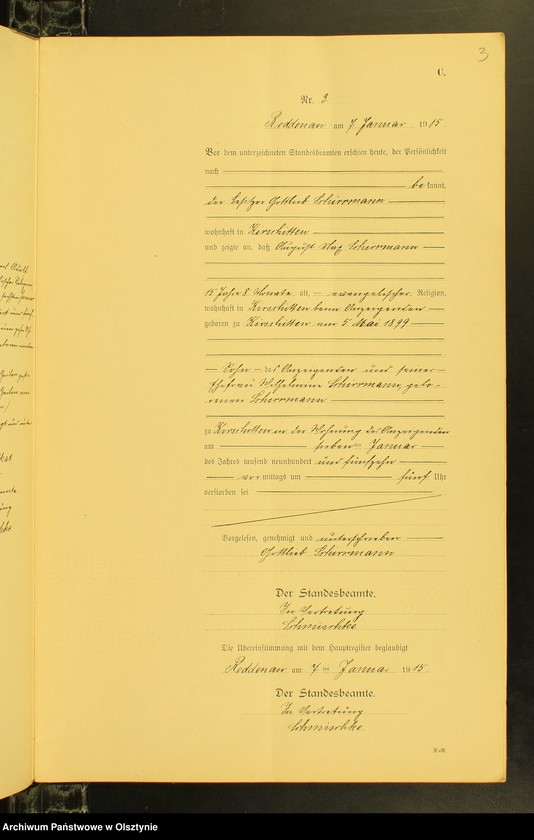 3
C.
Nr. 3.
Reddenau am 7. Januar 1915.
Vor dem unterzeichneten Standesbeamten erschien heute, der Persönlichkeit
nach
be kannt,
der Besitzer Gottlieb Schirrmann
wohnhaft in Kirschitten
und zeigte an, daß August Schirrmann
15 Jahre 8 Monate alt, evangelischer Religion,
wohnhaft in Kirschitten beim Anzeigenden
geboren zu Kirschitten am 5. Mai 1899
Sohn des Anzeigenden und seiner
Ehefrau Wilhelmine Schirrmann, gebo-
renen Schirrmann
zu Kirschitten in der Wohnung des Anzeigenden
am sieben ten Januar
des Jahres tausend neunhundert und fünfzehn
vor mittags um fünf Uhr
verstorben sei
Vorgelesen, genehmigt und unterschrieben
Gottlieb Schirrmann
Der Standesbeamte.
In Vertretung
Schmischke
Die Übereinstimmung mit dem Hauptregister beglaubigt
Reddenau am 7 ten Januar 1915
Der Standesbeamte.
In Vertretung
Schmischke
Archiwum Państwowe w Olsztynie